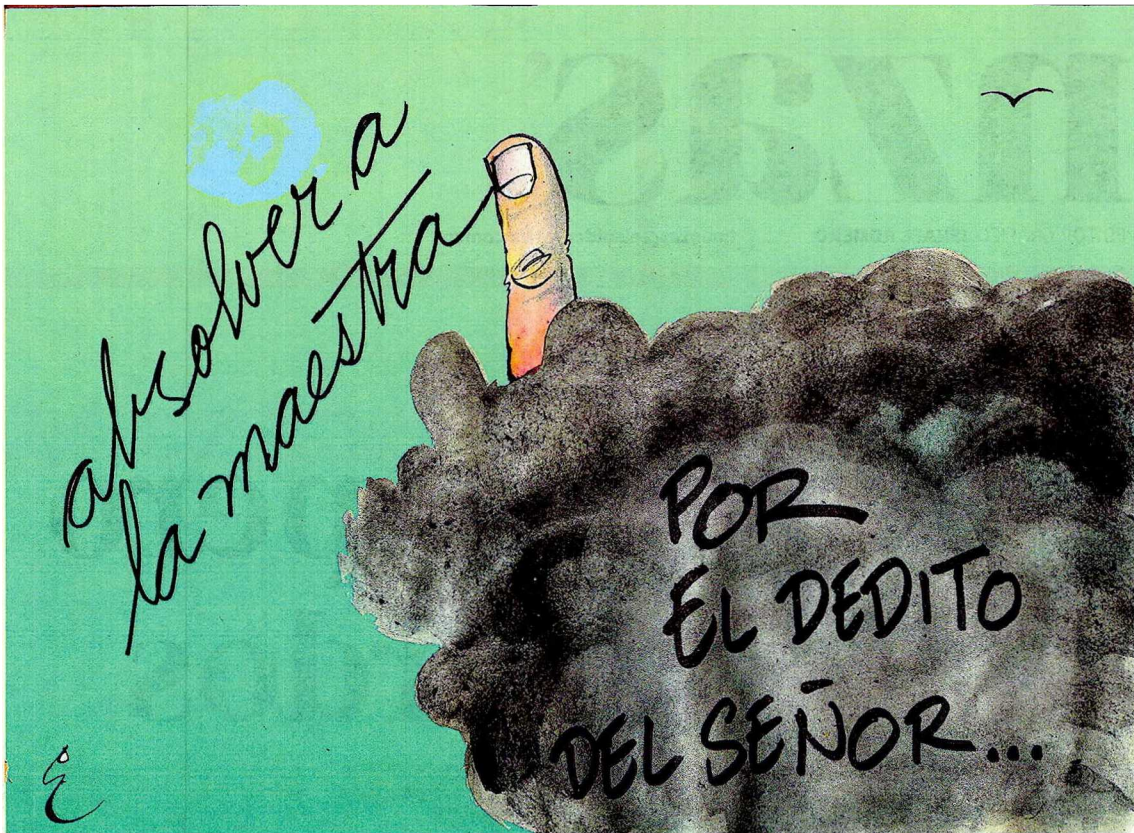 absolver a
la maestra
POR
EL DEDITO
DEL SEÑOR...